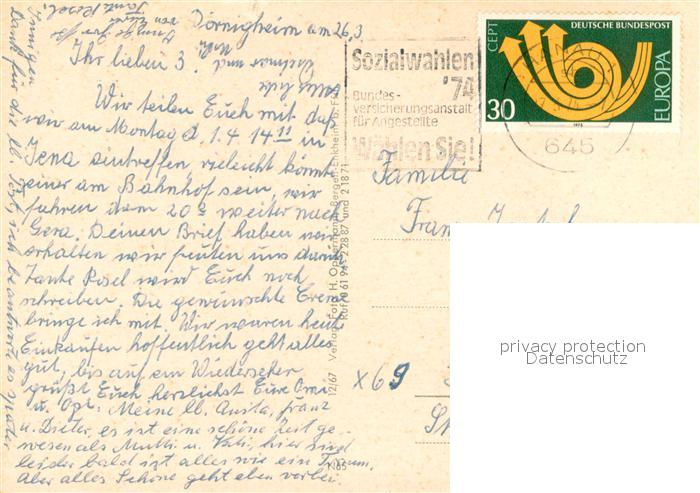 Dörnigheim am 26,3.
Ihr lieben 3
Wir teilen Euch mit daß
wir am Montag d 1.4 14¹¹ in
Jena eintreffen vieleicht könnte
einer am Bahnhof sein, wir
fahren dann 20 weiter nach
Gera. Deinen Brief haben wir
erhalten wir freuten uns darüber
Tante Rosel wird Euch noch
schreiben. Die gewünschte Creme
bringe ich mit. Wir waren heute
Einkaufen hoffentlich geht alles
gut, bis auf ein Wiedersehen
grüßt Euch herzlichst Eure Omi
u. Opi. Meine lb. Anita, Franz
u. Dieter, es ist eine schöne Zeit ge-
wesen als Mutti u. Vati, hier sind
leider bald ist alles wie ein Traum.
Aber alles Schöne geht eben vorbei.
Dank für die lb. Post, ich beantworte es später
Tante Rosel
Sozialwahlen
'74
Bundes-
versicherungsanstalt
für Angestellte
Wählen Sie!
CEPT
DEUTSCHE BUNDESPOST
30
EUROPA
1973
645
Familie
12/67 Verlag Foto H. Oppermann, Bergen-Enkheim b. Ffm.
Ruf 0 61 94 / 2 28 87 und 2 18 71
K 65
x 69
privacy protection
Datenschutz